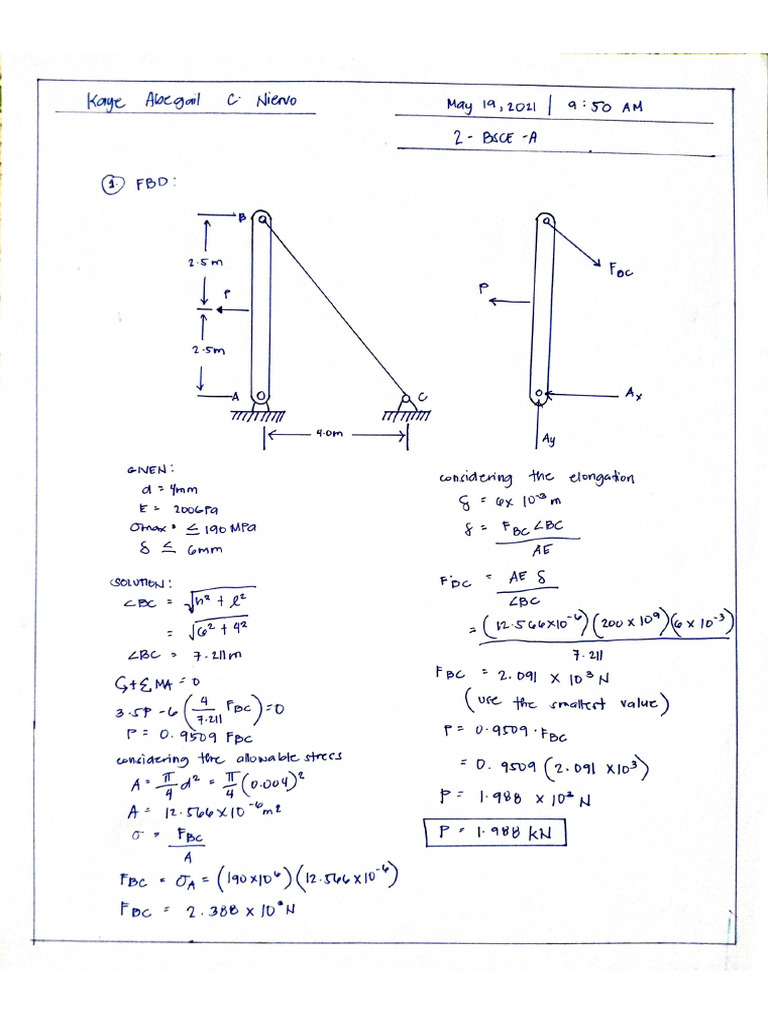 Kaye Abegail C. Niervo
May 19, 2021 | 9:50 AM
2 - BSCE - A
1. FBD:
B
2.5m
P
2.5m
A
C
4.0m
FBC
P
Ax
Ay
GIVEN:
d = 4mm
E = 200GPa
σmax = ≤ 190 MPa
δ ≤ 6mm
SOLUTION:
∠BC = √h² + l²
= √6² + 4²
∠BC = 7.211m
↺+ΣMA = 0
3.5P - 6(4/7.211 FBC) = 0
P = 0.9509 FBC
considering the allowable stress
A = π/4 d² = π/4 (0.004)²
A = 12.566 x 10⁻⁶ m²
σ = FBC/A
FBC = σA = (190x10⁶)(12.566 x10⁻⁶)
FBC = 2.388 x 10³N
considering the elongation
δ = 6x 10⁻³ m
δ = FBC ∠BC/AE
FBC = AE δ/∠BC
= (12.566x10⁻⁶)(200 x 10⁹)(6 x 10⁻³)/7.211
FBC = 2.091 x 10³ N
(use the smallest value)
P = 0.9509 · FBC
= 0.9509 (2.091 x10³)
P = 1.988 x 10³ N
P = 1.988 kN